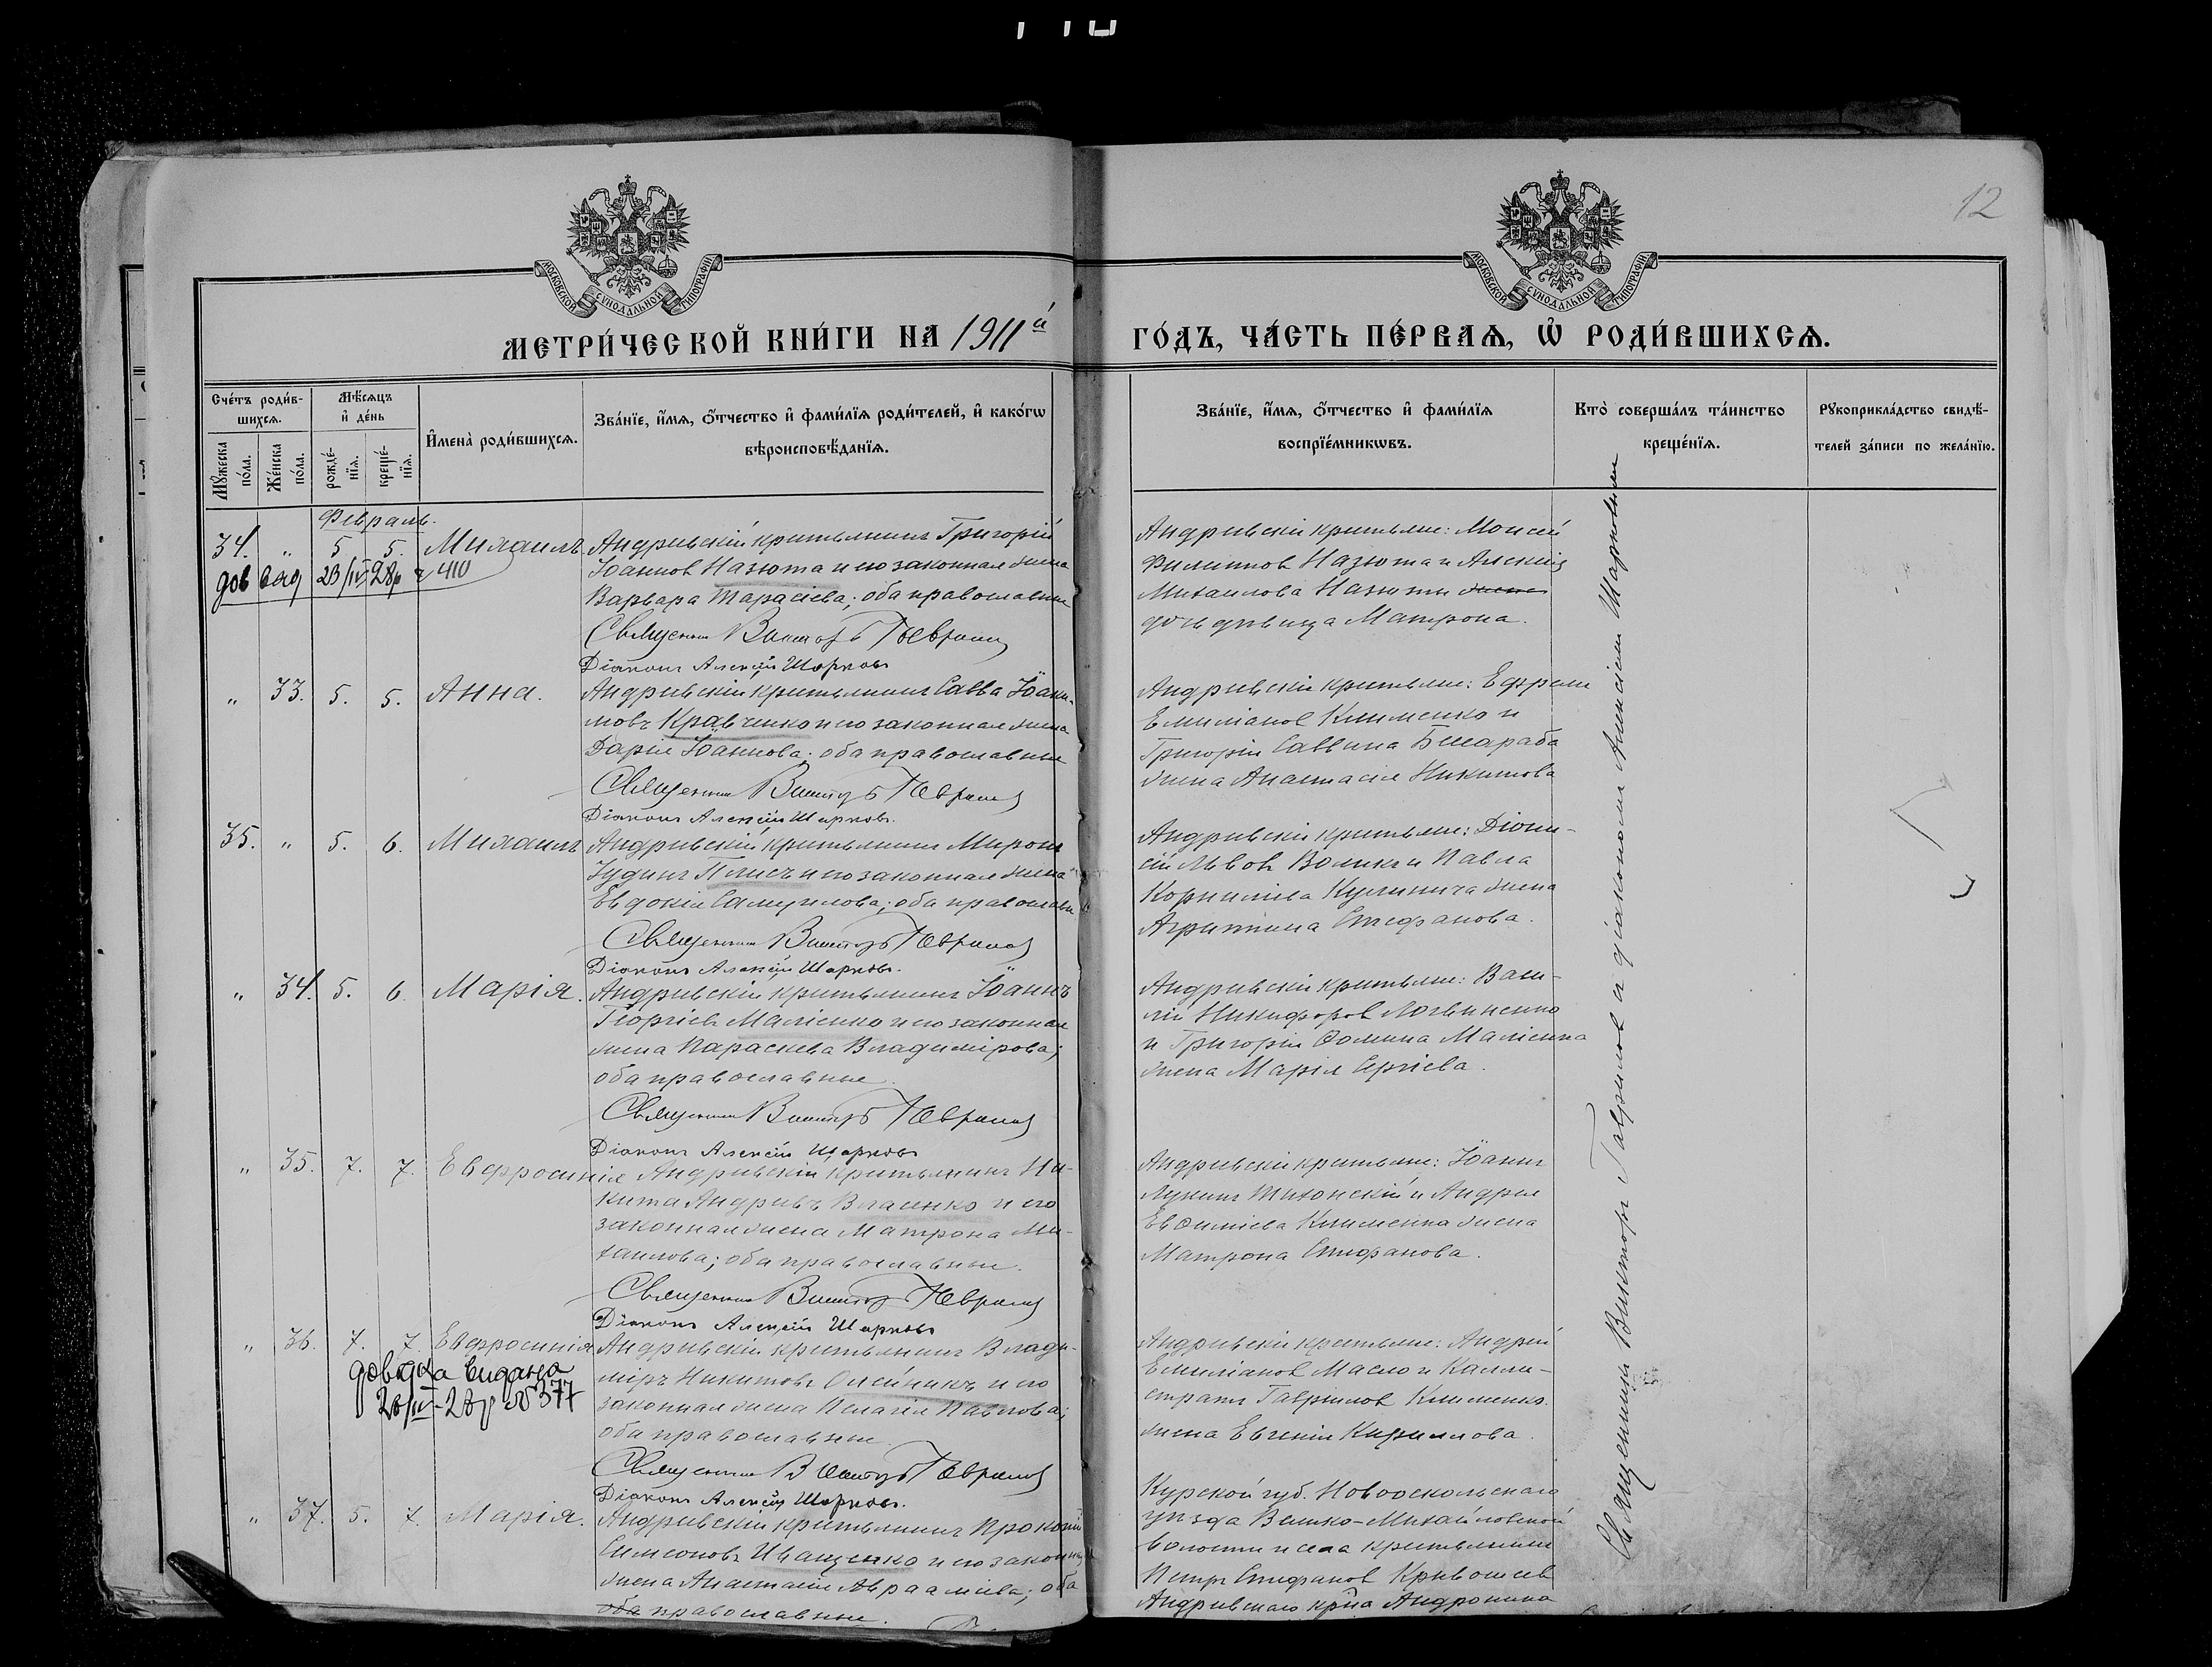 12
МОСКОВСКОЙ СУНОДАЛЬНОЙ ТИПОГРАФІИ
МОСКОВСКОЙ СУНОДАЛЬНОЙ ТИПОГРАФІИ
МЕТРИ́ЧЕСКОЙ КНИ́ГИ НА 1911й ГО́ДЪ, ЧА́СТЬ ПЕ́РВАѦ, Ѽ РОДИ́ВШИХСѦ.
Сче́тъ роди́в-
шихсѧ.
Мꙋ́жеска по́ла.
Же́нска по́ла.
Мѣ́сѧцъ
и҆ де́нь
рожде́-
нїѧ.
креще́-
нїѧ.
И҆мена̀ роди́вшихсѧ.
Зва́нїе, и҆́мѧ, ѻ҆́тчество и҆ фами́лїѧ роди́телей, и҆ како́гѡ
вѣроисповѣ́данїѧ.
Зва́нїе, и҆́мѧ, ѻ҆́тчество и҆ фами́лїѧ
воспрїе́мникѡвъ.
Кто̀ соверша́лъ та́инство
креще́нїѧ.
Рꙋкоприкла́дство свидѣ́-
телей за́писи по жела́нїю.
Февраль.
34. " 5 5. Михаилъ
дов вид 23/IV 28р 410
Андреевскій крестьянинъ Григорій
Іоанновъ Назюта и его законная жена
Варвара Тарасіева; оба православные
Священникъ Викторъ Гавриловъ
Діаконъ Алексій Шарковъ
Андреевскіе крестьяне: Моисей
Филиппов Назюта и Алексія
Михаилова Назюты жена
дочь девица Матрона.
" 33. 5. 5. Анна.
Андреевскій крестьянинъ Савва Іоаки-
мовъ Кравченко и его законная жена
Дарія Іоаннова; оба православные
Священникъ Викторъ Гавриловъ
Діаконъ Алексій Шарковъ.
Андреевскіе крестьяне: Ефрем
Емиліанов Клименко и
Григорія Саввина Бшараба
жена Анастасія Никитова
35. " 5. 6. Михаилъ
Андреевскій крестьянинъ Миронъ
Іудинъ Плисъ и его законная жена
Евдокія Самуилова; оба православн
Священникъ Викторъ Гавриловъ
Діаконъ Алексій Шарковъ.
Андреевскіе крестьяне: Діони-
сій Львов Воликъ и Павла
Корниліева Кулинича жена
Агриппина Стефанова.
" 34. 5. 6. Марія.
Андреевскій крестьянинъ Іоаннъ
Георгіевъ Маліенко и его законная
жена Параскева Владимірова;
оба православные.
Священникъ Викторъ Гавриловъ
Діаконъ Алексій Шарковъ
Андреевскіе крестьяне: Васи-
лій Никифоров Логвиненко
и Григорія Ѳомина Маліенка
жена Марія Сергіева.
" 35. 7. 7. Евфросинія
Андреевскій крестьянинъ Ни-
кита Андреевъ Власенко и его
законная жена Матрона Ми-
хаилова; оба православные.
Священникъ Викторъ Гавриловъ
Діаконъ Алексій Шарковъ
Андреевскіе крестьяне: Іоаннъ
Лукинъ Тихонскій и Андрея
Евѳиміева Клименка жена
Матрона Стефанова.
" 36. 7. 7. Евфросинія
довідка видана
28/IV-28р №377
Андреевскій крестьянинъ Влади-
міръ Никитовъ Олейникъ и его
законная жена Пелагія Павлова;
оба православные.
Священникъ Викторъ Гавриловъ
Діаконъ Алексій Шарковъ.
Андреевскіе крестьяне: Андрей
Емиліанов Масло и Калли-
страта Гаврилов Клименко.
жена Евгенія Кириллова.
" 37. 5. 7. Марія.
Андреевскій крестьянинъ Прокопій
Симеоновъ Иващенко и его законная
жена Анастасія Авраамиева; оба
оба православные.
Курской губ. Новооскольскаго
уезда Велико-Михайловской
волости и села крестьянин
Петръ Стефанов Кривошеев
Андреевскаго крна Андроника
Священникъ Викторъ Гаврилов и діаконом Алексіем Шарковым